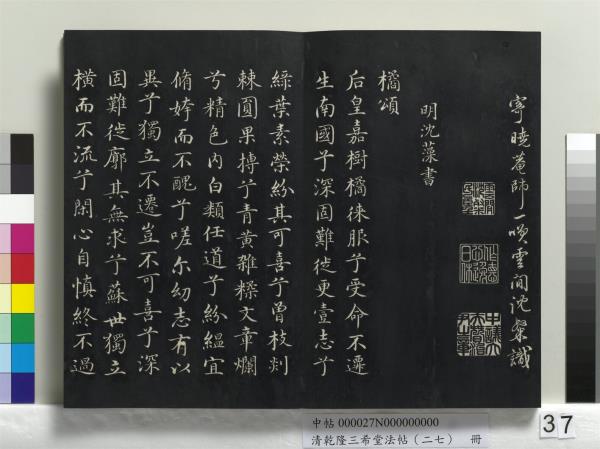 寄曉菴師一咲雲間沈粲識
明沈藻書
橘頌
后皇嘉樹橘徠服兮受命不遷
生南國兮深固難徙更壹志兮
綠葉素榮紛其可喜兮曾枝剡
棘圓果摶兮青黃雜糅文章爛
兮精色內白類任道兮紛縕宜
脩姱而不醜兮嗟尔幼志有以
異兮獨立不遷豈不可喜兮深
固難徙廓其無求兮蘇世獨立
橫而不流兮閉心自慎終不過
中帖 000027N000000000
清乾隆三希堂法帖（二七） 冊
37